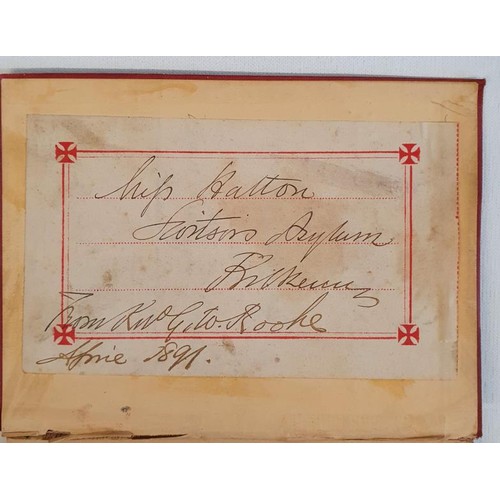 Miss Hatton
Asylum
Kilkenny
From Revd G. W. Rooke
April 1891.